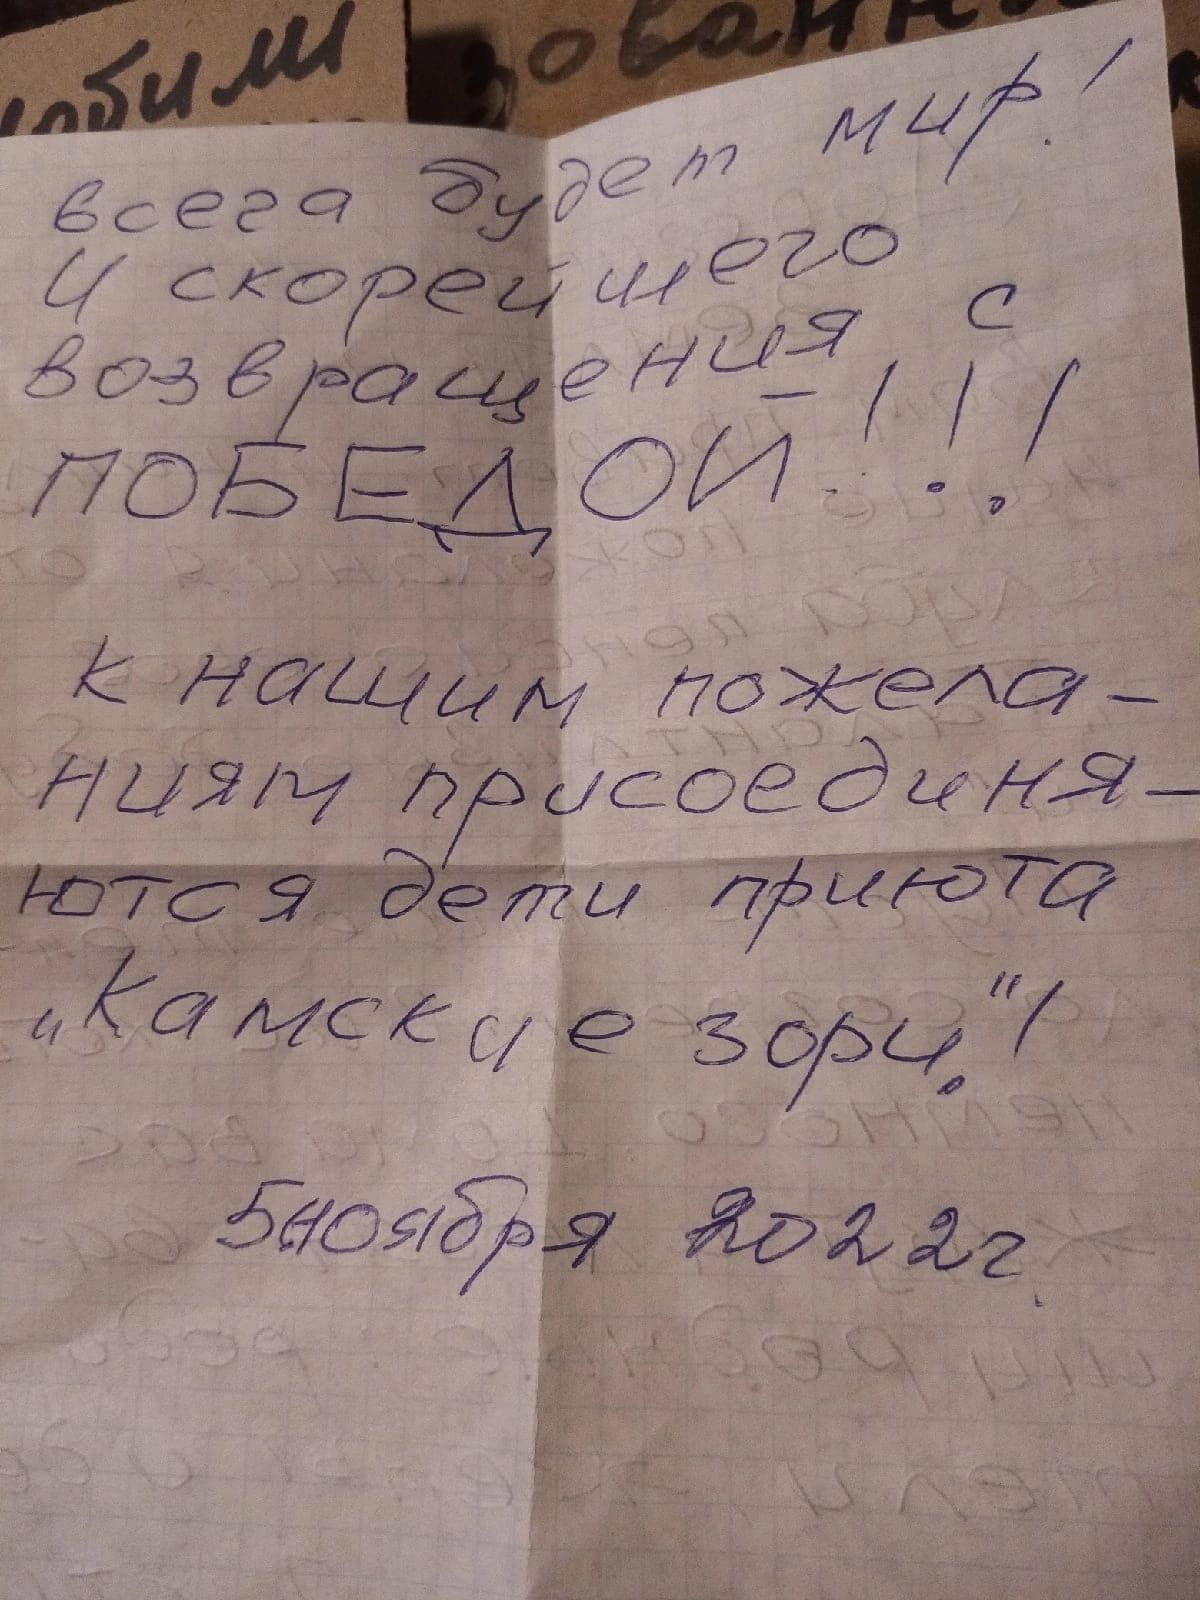 мобили
зованны
всега будет мир!
И скорейшего
возвращения с
ПОБЕДОЙ!!!
К нашим пожела-
ниям присоединя-
ются дети приюта
„Камские зори"!
5 ноября 2022г.